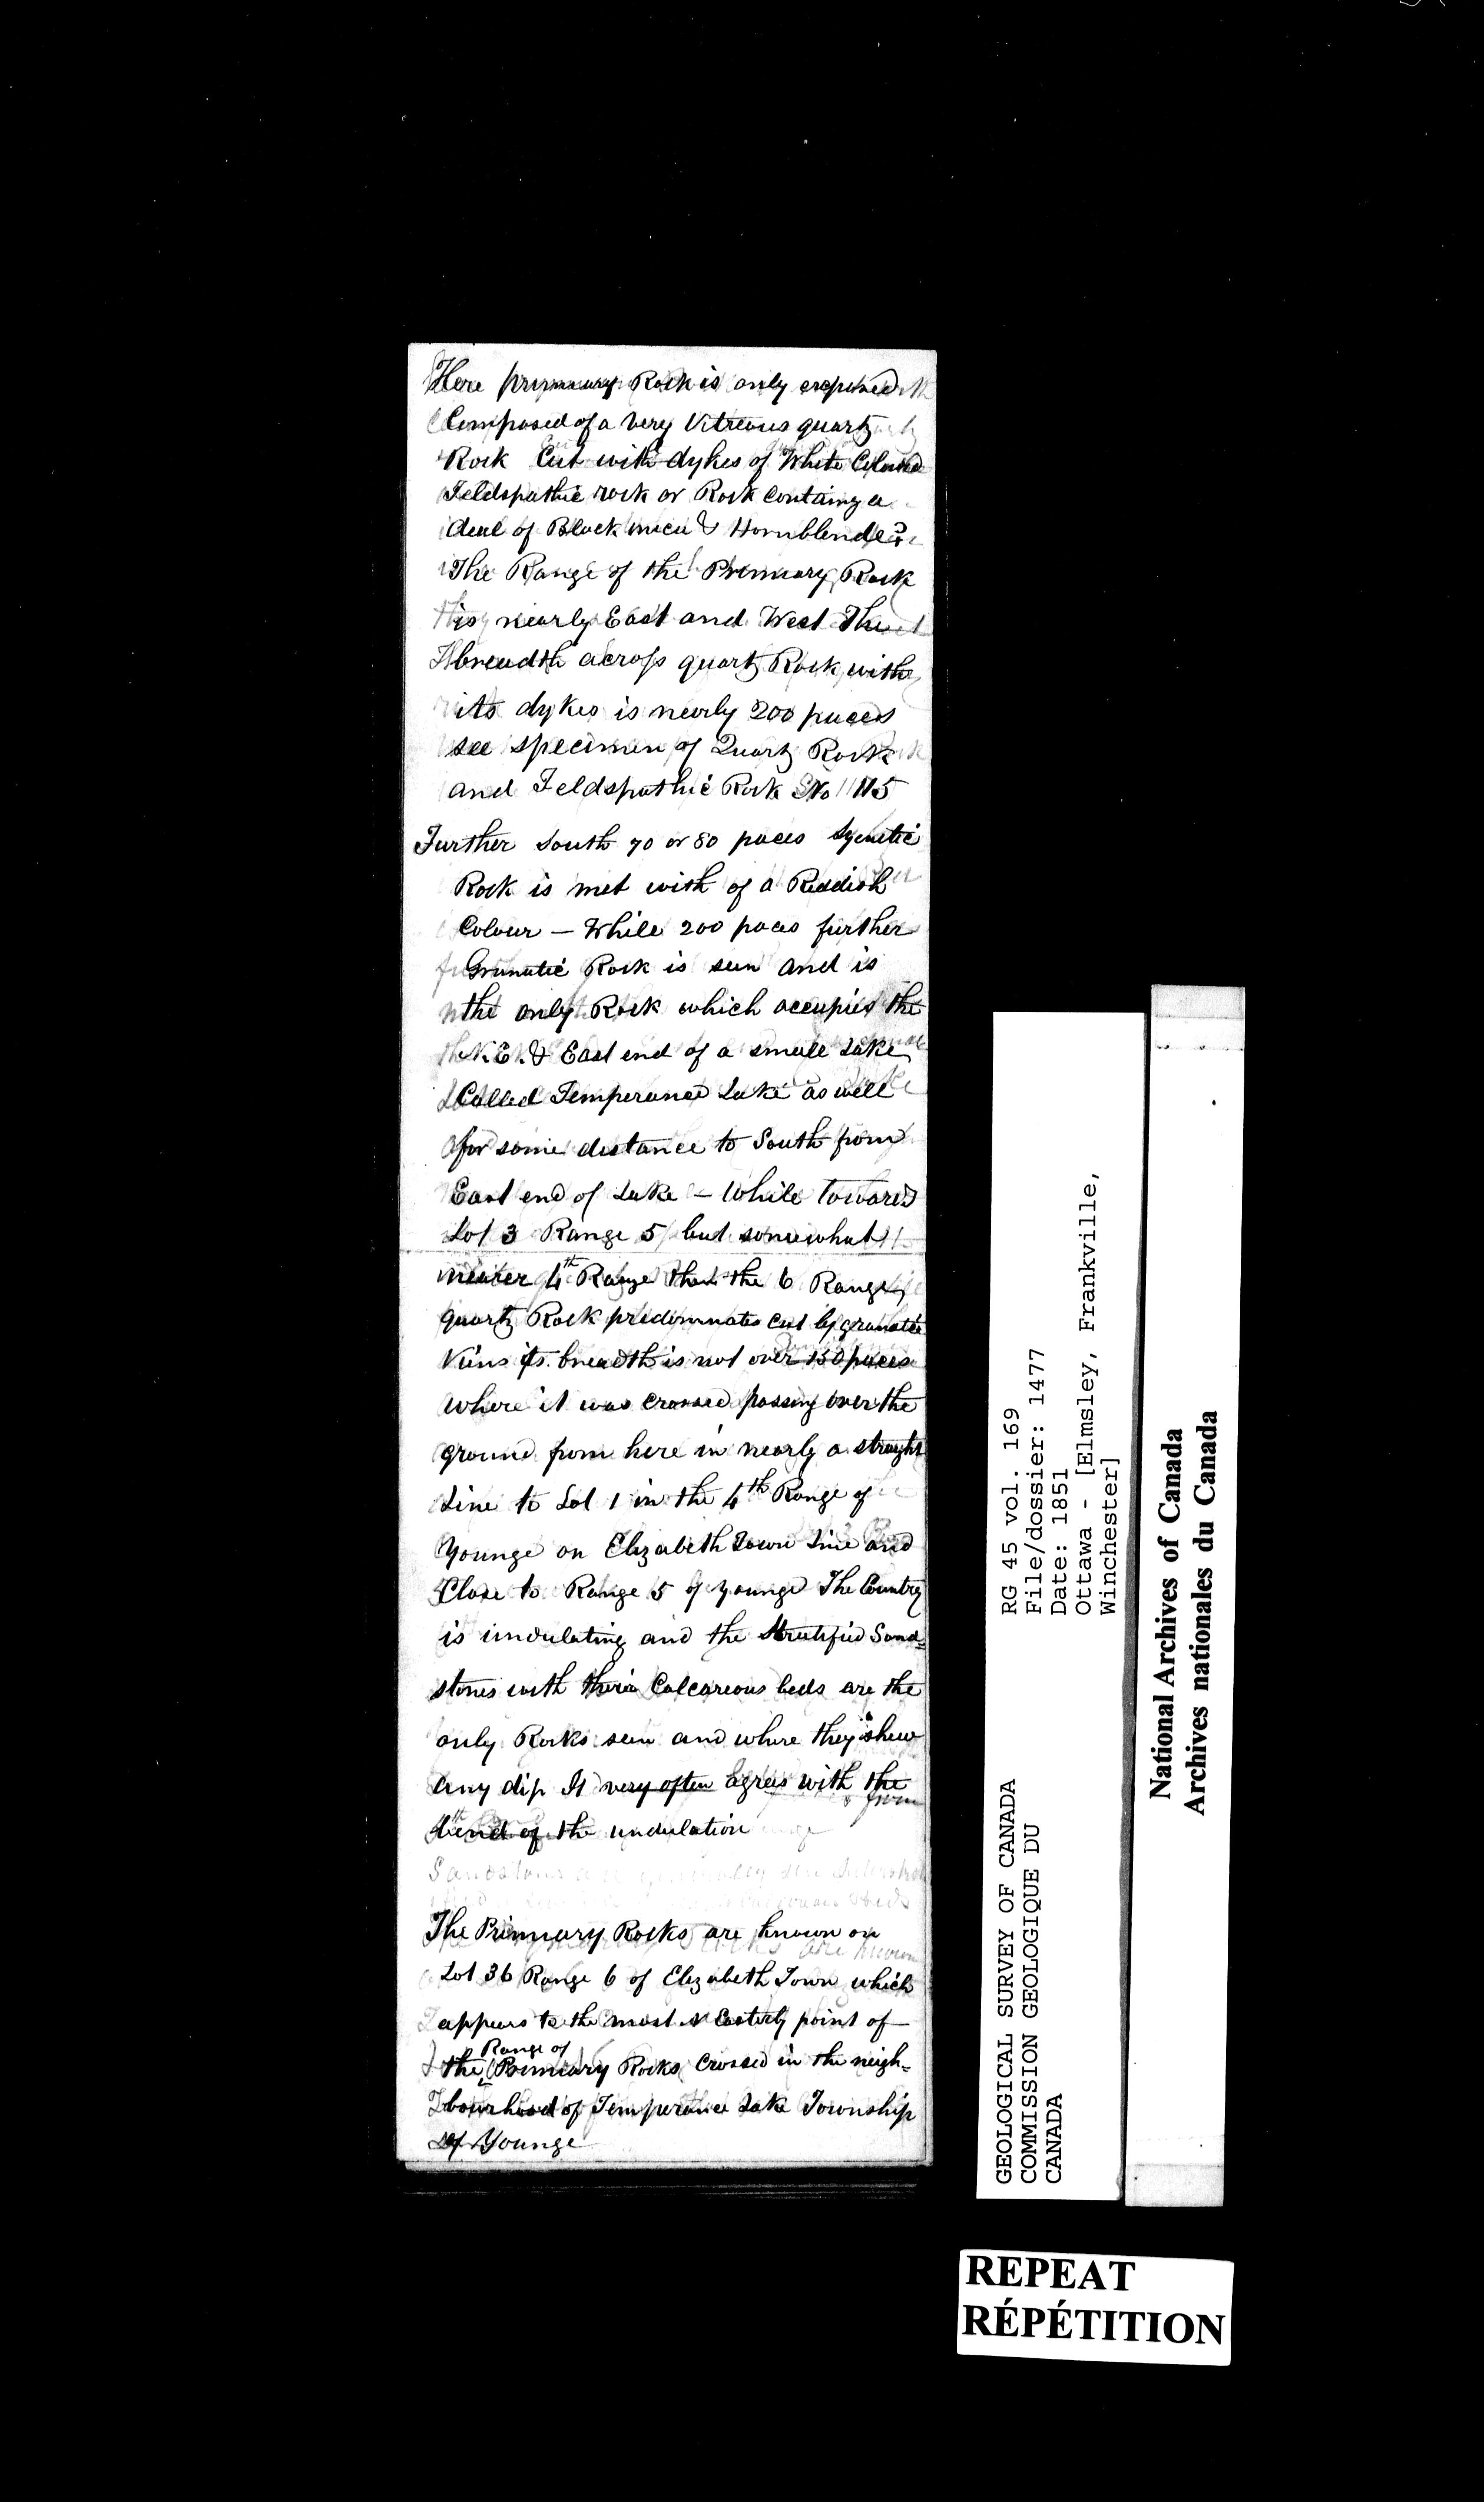 Here primary Rock is only exposed
Composed of a very Vitreous quartz
Rock Cut with dykes of White Colored
Feldspathic rock or Rock Containg a
deal of Black mica & Hornblende?
The Range of the Primary Rock
is nearly East and West The
breadth across quartz Rock with
its dykes is nearly 200 paces
see specimen of Quartz Rock
and Feldspathic Rock No 115
Further South 70 or 80 paces Syenetic
Rock is met with of a Reddish
Colour – While 200 paces further
Granatic Rock is seen and is
the only Rock which occupies the
N.E. & East end of a small Lake
Called Temperance Lake as well
for some distance to South from
East end of Lake – While towards
Lot 3 Range 5 but somewhat
nearer 4th Range than the 6 Range
quartz Rock predominates cut by granatic
Veins its breadth is not over 150 paces
where it was crossed passing over the
ground from here in nearly a straight
Line to Lot 1 in the 4th Range of
Younge on Elizabeth Town Line and
Close to Range 5 of Younge The Country
is undulating and the Stratified Sand=
stones with their Calcareous beds are the
only Rocks seen and where they shew
any dip It very often agrees with the
from
bend of the undulation
The Primary Rocks are known on
Lot 36 Range 6 of Elizabeth Town which
appears to the most Easterly point of
Range of
the Primary Rocks Crossed in the neigh=
bourhood of Temperance Lake Township
of Younge
GEOLOGICAL SURVEY OF CANADA
COMMISSION GEOLOGIQUE DU
CANADA
RG 45 vol. 169
File/dossier: 1477
Date: 1851
Ottawa - [Elmsley, Frankville,
Winchester]
National Archives of Canada
Archives nationales du Canada
REPEAT
RÉPÉTITION